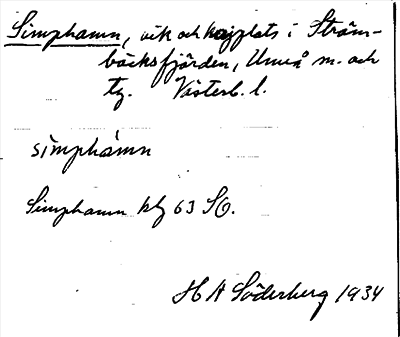 Simphamn, vik och kajplats i Ström-
bäcksfjärden, Umeå m. och
tg. Västerb. l.
simphàmn
Simphamn kbl 63 SO.
H A Söderberg 1934